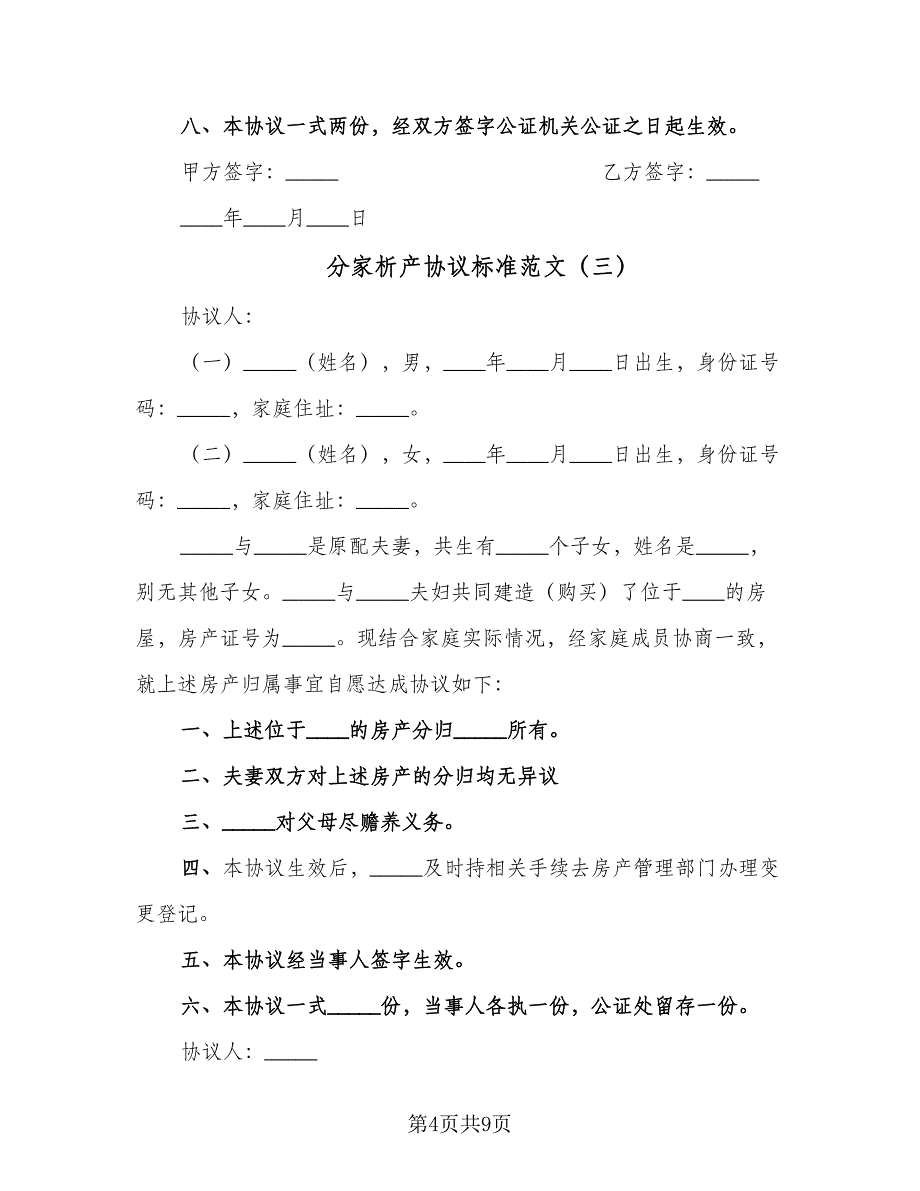 八、本协议一式两份，经双方签字公证机关公证之日起生效。
甲方签字：_____ 乙方签字：_____
____年____月____日
分家析产协议标准范文（三）
协议人：
（一）_____（姓名），男，____年____月____日出生，身份证号
码：_____，家庭住址：_____。
（二）_____（姓名），女，____年____月____日出生，身份证号
码：_____，家庭住址：_____。
_____与_____是原配夫妻，共生有_____个子女，姓名是_____，
别无其他子女。_____与_____夫妇共同建造（购买）了位于____的房
屋，房产证号为_____。现结合家庭实际情况，经家庭成员协商一致，
就上述房产归属事宜自愿达成协议如下：
一、上述位于____的房产分归_____所有。
二、夫妻双方对上述房产的分归均无异议
三、_____对父母尽赡养义务。
四、本协议生效后，_____及时持相关手续去房产管理部门办理变
更登记。
五、本协议经当事人签字生效。
六、本协议一式_____份，当事人各执一份，公证处留存一份。
协议人：_____
第4页共9页